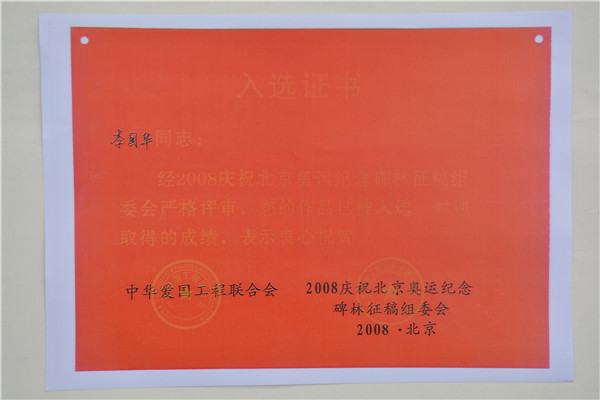 入选证书
李国华同志：
经2008庆祝北京奥运纪念碑林征稿组
委会严格评审，您的作品已被入选，对您
取得的成绩，表示衷心祝贺
中华爱国工程联合会
2008庆祝北京奥运纪念
碑林征稿组委会
2008·北京